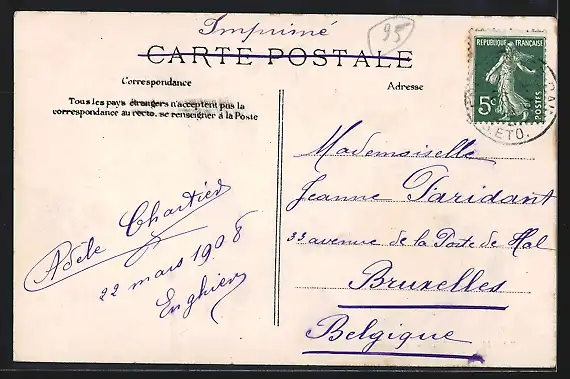 Imprimé
95
CARTE POSTALE
Correspondance
Adresse
Tous les pays étrangers n'acceptent pas la
correspondance au recto. se renseigner à la Poste
REPUBLIQUE FRANÇAISE
5c
POSTES
ET O.
Mademoiselle
Jeanne Paridant
33 avenue de la Porte de Hal
Bruxelles
Belgique
Adèle Chartier
22 mars 1908
Enghien